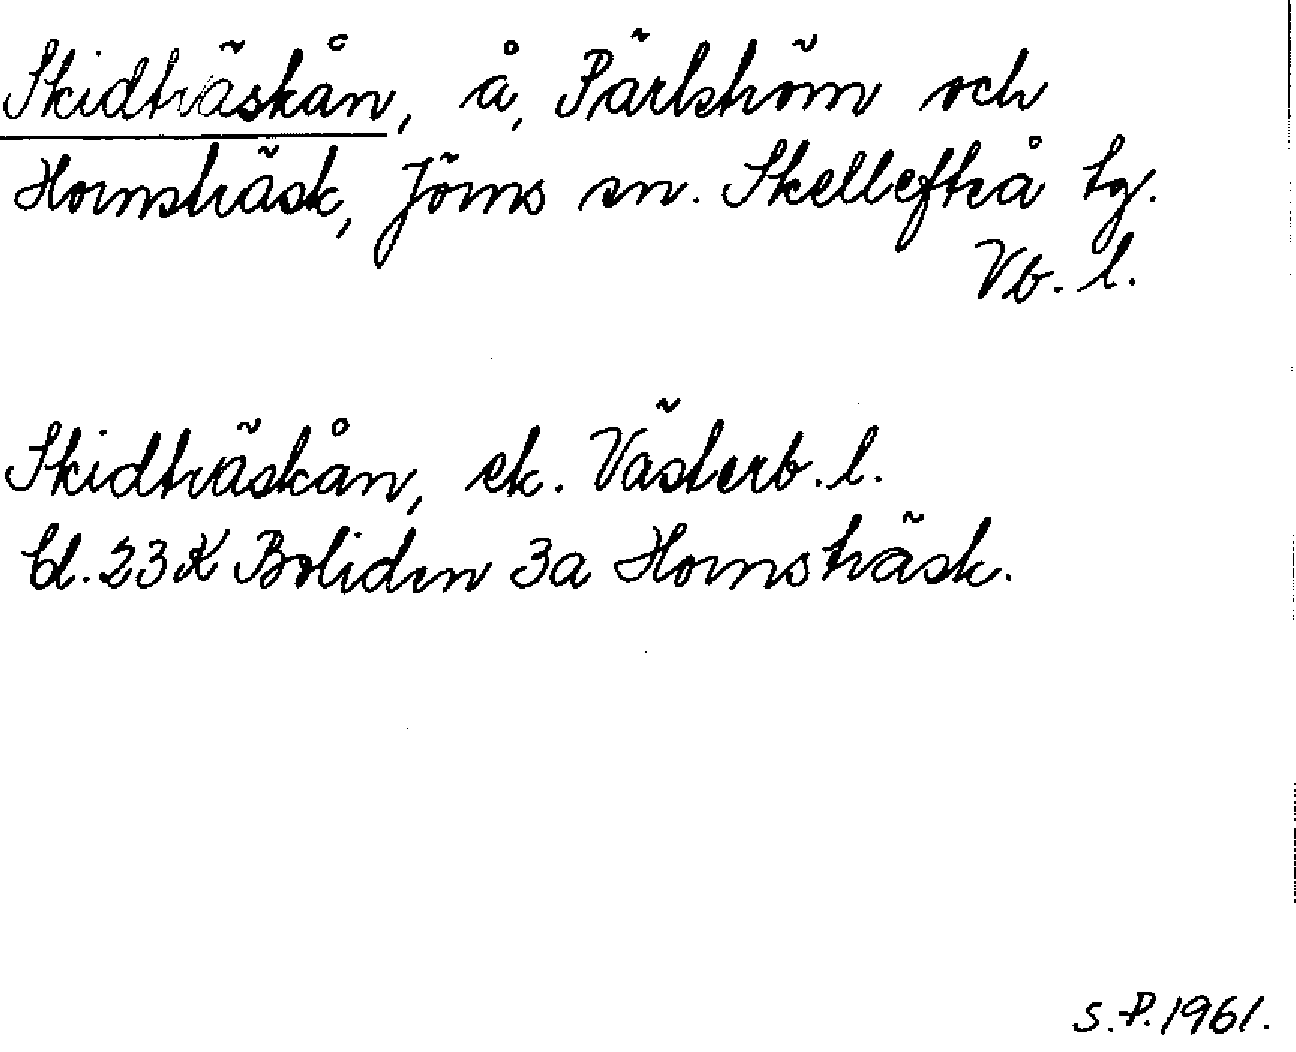 Skidträskån, å, Pärlström och
Hornsträsk, Jörns sn. Skellefteå tg.
Vb. l.
Skidträskån, ek. Västerb. l.
bl. 23 K Boliden 3a Hornsträsk.
S.P. 1961.